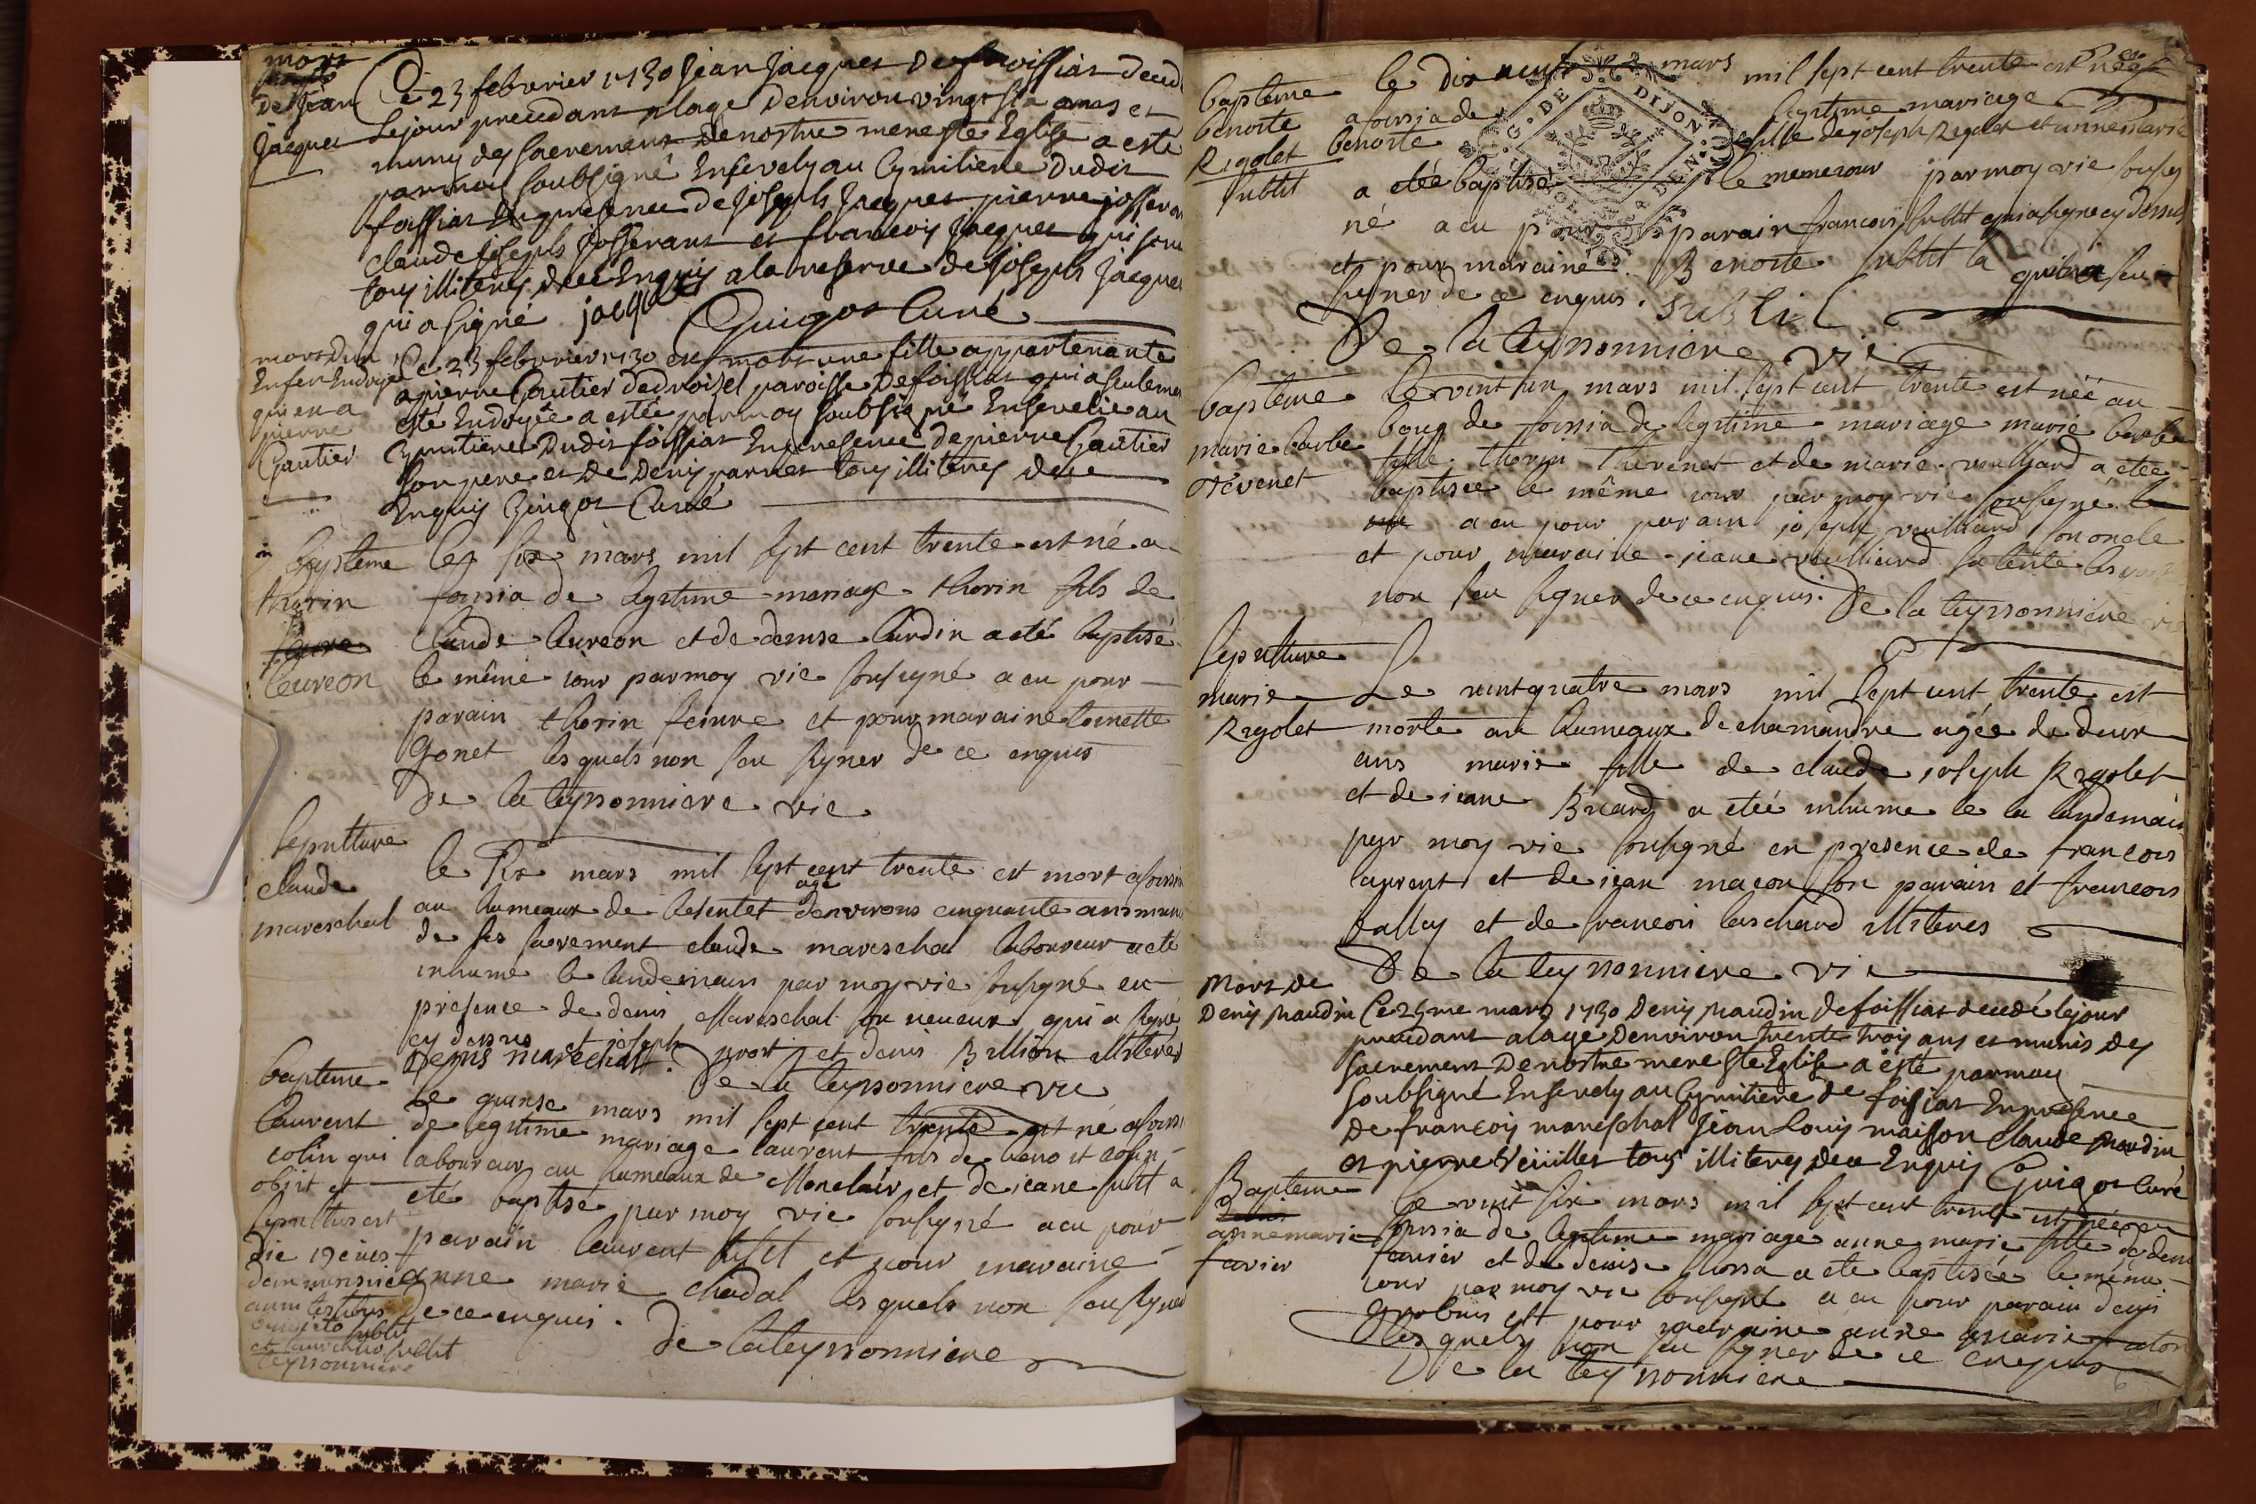 mort
de Jean
Jacques
Ce 23 febvrier 1730 Jean Jacques de foissiat deced
le jour precedant a lage denviron vingt six anns et
muny des sacrements de nostre mere ste Eglise a esté
par moy soubsigné Ensevely au Cymitiere dudit
foissiat En presence de Joseph Jacques pierre josseran
Claude joseph Josserant et francois Jacques qui sont
tous illiterés de ce Enquis a la reserve de Joseph Jacques
qui a signé jacques Guigot Curé
mort d'un
Enfant Endoyé
qui en a
pierre
Gautier
Ce 23 febvrier 1730 est mort une fille appartenante
a pierre Gautier de droisel paroisse de foissiat qui a seulemen
esté Endoyée a estée par moy soubsigné Ensevelie au
Cymitiere dudit foissiat En presence de pierre Gautier
son pere et de Denis parnet tous illiterés de ce
Enquis Guigot Curé
bapteme
thorin
leureon
le six mars mil sept cent trente est né a
foissia de legitime mariage thorin fils de
claude leureon et de denise lurdin a eté baptisé
le même iour par moy vic sousigné a eu pour
parain thorin feivre et pour maraine toinette
gonet les quels non seu signer de ce enquis
De la teyssonniere vic
sepulture
claude
mareschal
le six mars mil sept cent trente est mort a foissia
au hameaux de agé denvirons cinquante ans muni
de ses sacrement claude mareschal laboureur a eté
inhumé le lendemain par moy vic sousigné en
presence de denis Mareschal son neveux qui a signé
cy dessus et joseph et denis Billion illiteres
Denis marechalt. De la teyssonniere vic
bapteme
laurent
colin qui
obiit et
sepultus est
die 19 eius
dem mensis
Le quinse mars mil sept cent trente est né a foissia
de legitime mariage laurent fils de beno it colin
laboureur au hameaux de Monclair et de ieane sublit a
eté baptisé par moy vic sousigné a eu pour
parain laurent sublit et pour maraine
anne marie chadal les quels non seu signer
de ce enquis. De la teyssonniere
et sublit
teyssonniere
bapteme
benoite
Rigolet
sublit
le dix neuf mars mil sept cent trente est née
a foissia de legitime mariage
benoite fille de joseph Rigolet et anne marie
a eteé baptisé le meme iour par moy vic sousig
né a eu pour parain francois sublit qui a signe cy dessus
et pour maraine Benoite sublit la qui na seu
signer de ce enquis. sublit
De la teyssonniere vic
bapteme
marie barbe
tévenet
le vint un mars mil sept cent trente est née au
bourg de foissia de legitime mariage marie barbe
fille thorin thevenet et de marie vouilliard a etee
baptisée le même iour par moy vic sousigné
a eu pour parain joseph vouilliard son oncle
et pour maraine ieane vouilliard sa tente les
non seu signer de ce enquis. De la teyssonniere vic
sepulture
marie
Rigolet
Le vint quatre mars mil sept cent trente est
morte au hameaux de chamandre agée de deux
ans marie fille de claude ioseph Rigolet
et de ieane Bricard a eteé inhume le landemain
par moy vic sousigné en presence de francois
laurent et de iean maçon son parain et francois
et de francois illiteres
De la teyssonniere vic
Mort de
Denis Naudin
Ce 25me mars 1730 Denis Naudin de foissiat decedé le jour
precedant a lage denviron trente trois ans et munis des
sacrement de nostre mere ste Eglise a esté par moy
soubsigné Ensevely au Cymitiere de foissiat En presence
de francois mareschal Jean Louis maisson Claude Naudin
et pierre Veüillet tous illiterés de ce Enquis Guigot Curé
Bapteme
anne marie
favier
le vint six mars mil sept cent trente est née a
foissia de legitime mariage anne marie fille de denis
favier et de denise a ete baptisée le même
iour par moy vic sousigné a eu pour parain denis
et pour maraine anne marie
les quels non seu signer de ce enquis
De la teyssonniere
G. DE DIJON